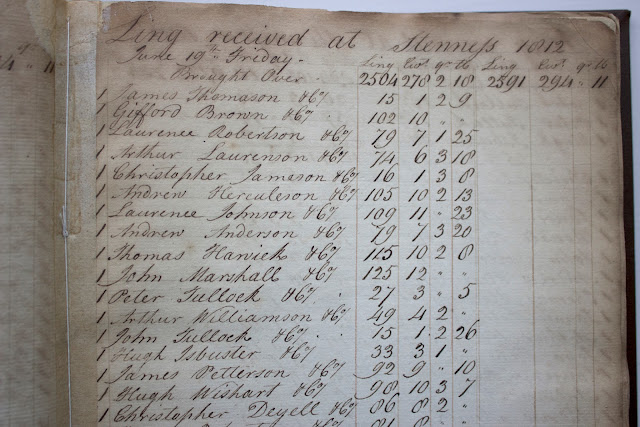 Ling received at Stenness 1812
June 19th Friday- Ling Cwt qr lb Ling Cwt qr lb
Brought Over 2504 278 2 18 2591 294 " 11
1 James Thomason &67 15 1 2 9
1 Gifford Brown &67 102 10 " "
1 Laurence Robertson &67 79 7 1 25
1 Arthur Laurenson &67 74 6 3 18
1 Christopher Jameson &67 16 1 3 8
1 Andrew Herculeson &67 105 10 2 13
1 Laurence Johnson &67 109 11 " 23
1 Andrew Anderson &67 79 7 3 20
1 Thomas Harrick &67 115 10 2 8
1 John Marshall &67 125 12 " "
1 Peter Tullock &67 27 3 " 5
1 Arthur Williamson &67 49 4 2 "
1 John Tullock &67 15 1 2 26
1 Hugh Isbuster &67 33 3 1 "
1 James Petterson &67 92 9 " 10
1 Hugh Wishart &67 98 10 3 7
1 Christopher Deyell &67 86 8 2 "
81 8 "